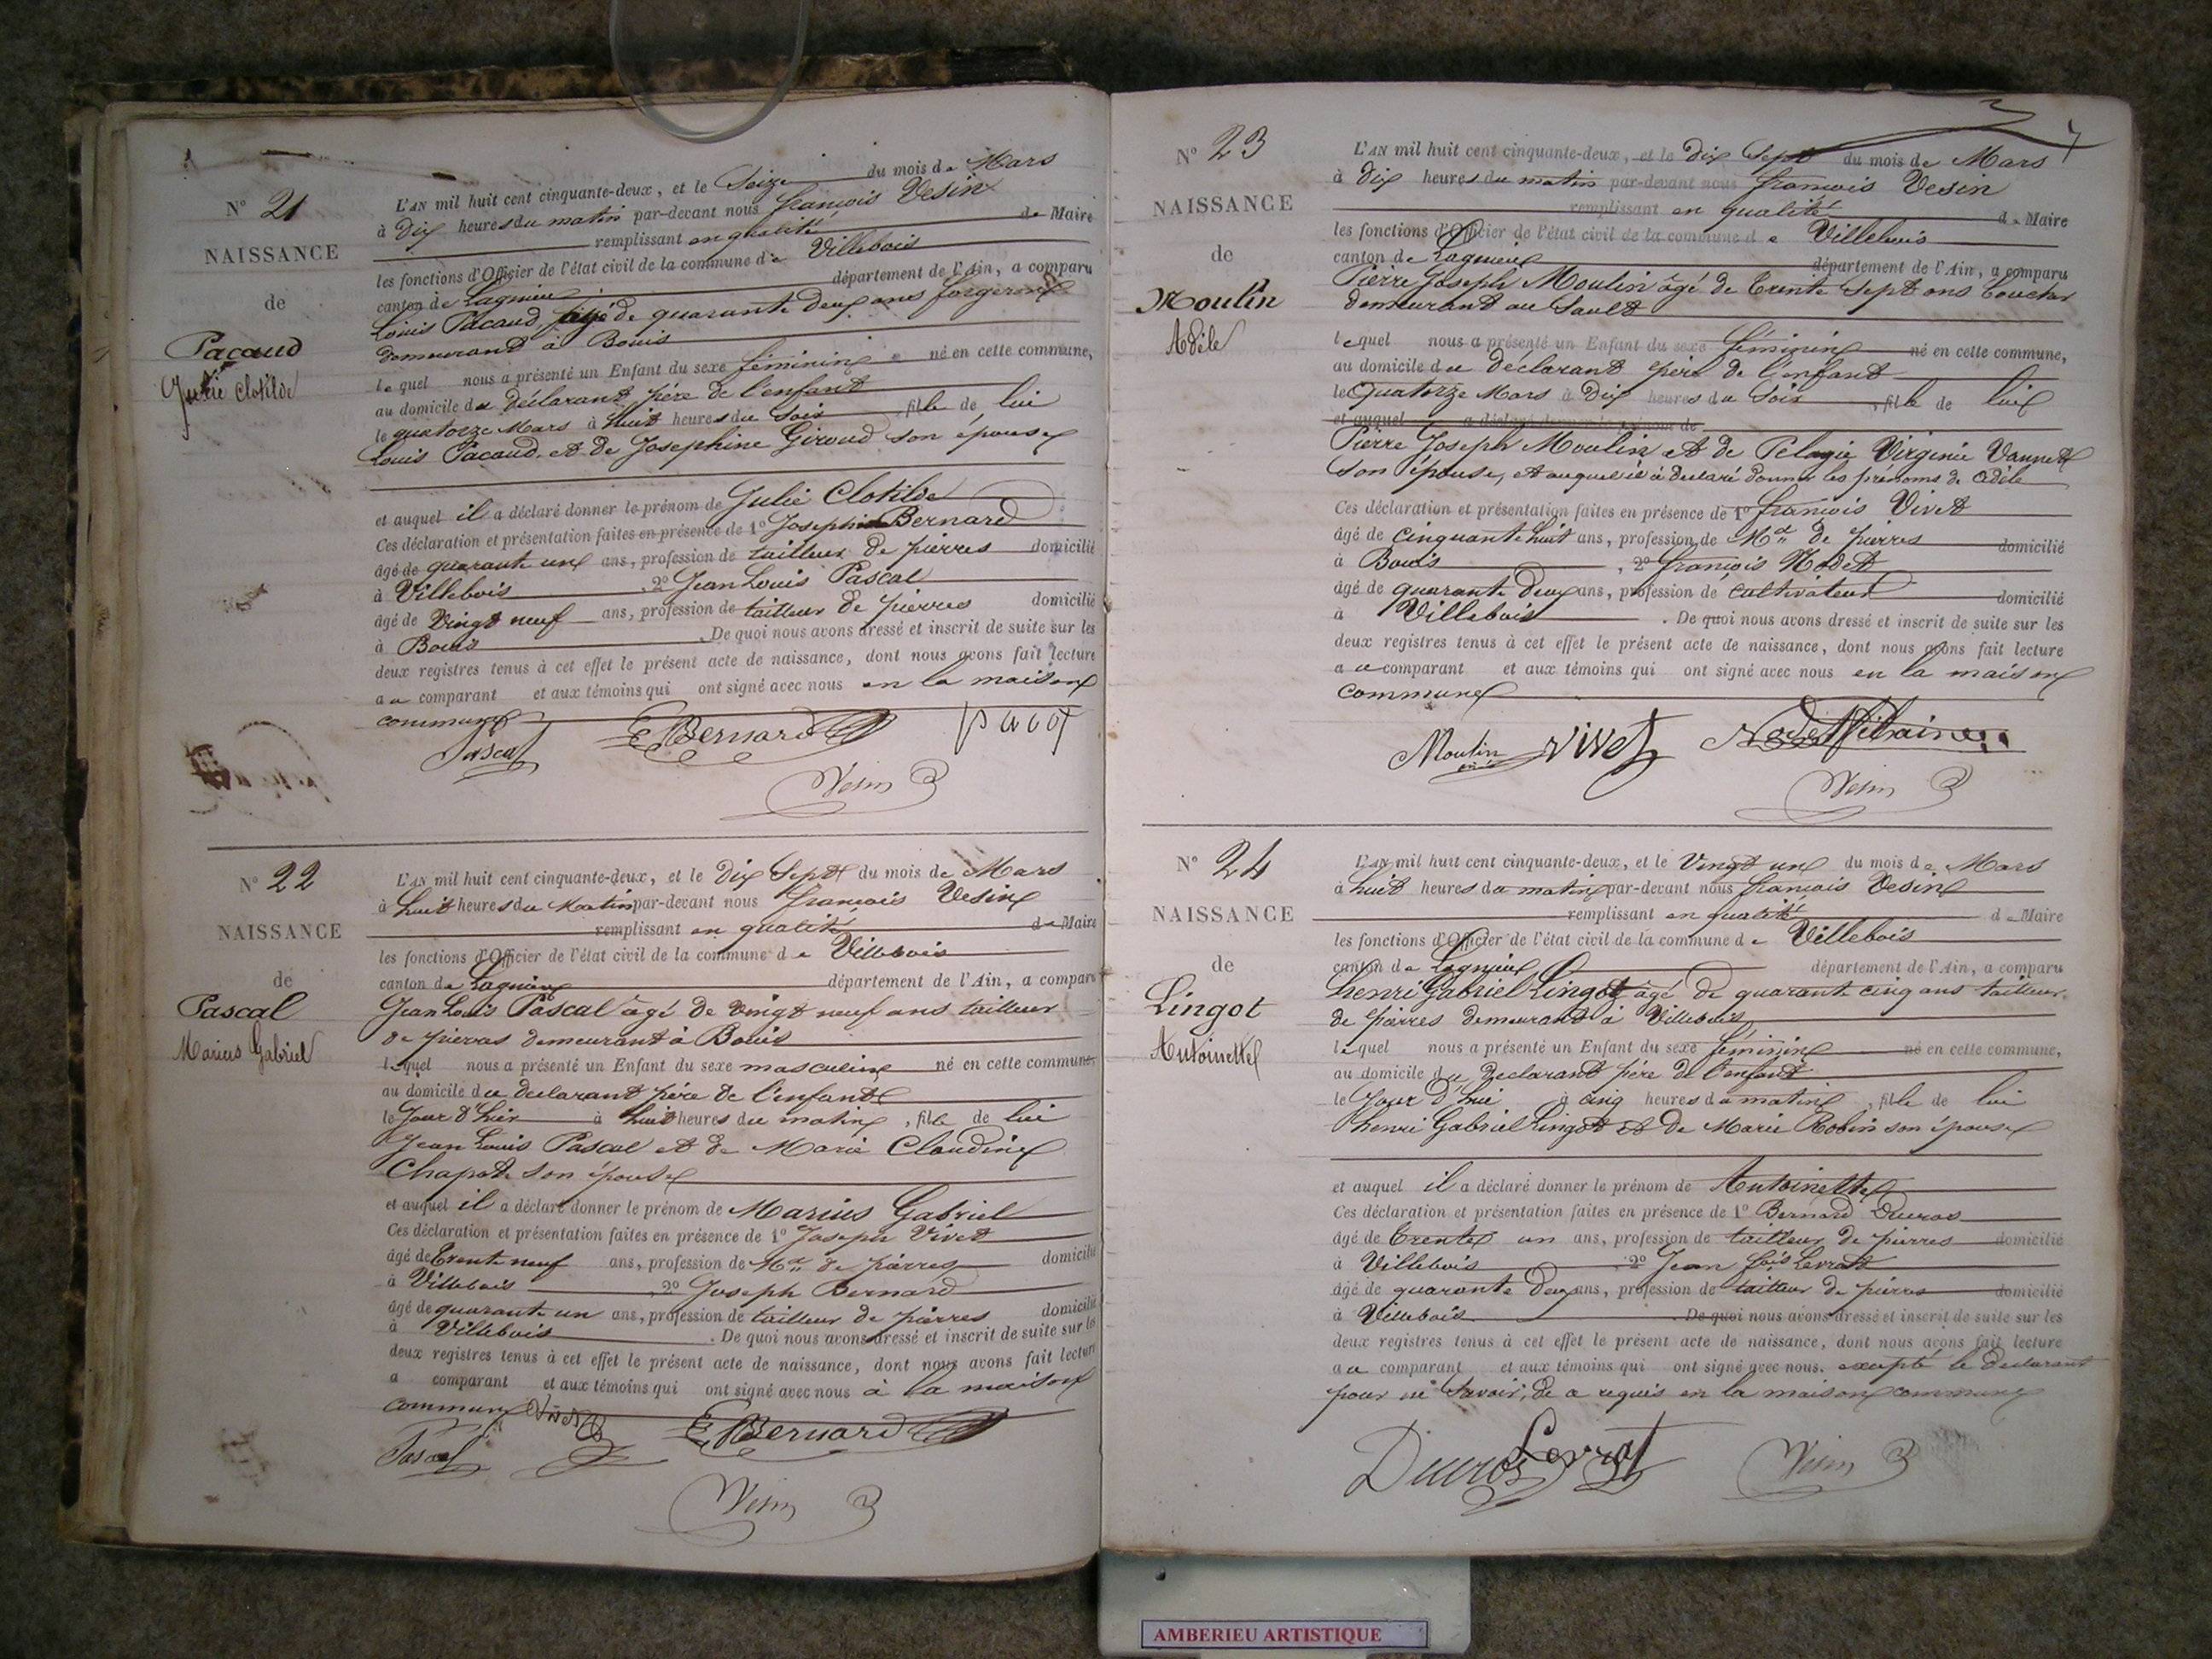 N° 21
NAISSANCE
de
Pacaud
Julie Clotilde
L'AN mil huit cent cinquante-deux, et le Seize du mois de Mars
à Dix heures du matin par-devant nous françois Vesin
remplissant en qualité de Maire
les fonctions d'Officier de l'état civil de la commune de Villebois
canton de Lagnieu département de l'Ain, a comparu
Louis Pacaud, âgé de quarante deux ans forgeron
demeurant à Bouis
lequel nous a présenté un Enfant du sexe féminin né en cette commune,
au domicile du déclarant père de l'enfant
le quatorze Mars à huit heures du soir, fille de lui
Louis Pacaud et de Josephine Giroud son épouse
et auquel il a déclaré donner le prénom de Julie Clotilde
Ces déclaration et présentation faites en présence de 1° Joseph Bernard
âgé de quarante un ans, profession de tailleur de pierres domicilié
à Villebois, 2° Jean Louis Pascal
âgé de vingt neuf ans, profession de tailleur de pierres domicilié
à Bouis. De quoi nous avons dressé et inscrit de suite sur les
deux registres tenus à cet effet le présent acte de naissance, dont nous avons fait lecture
au comparant et aux témoins qui ont signé avec nous en la maison
commune
Pascal Bernard
Vesin
N° 22
NAISSANCE
de
Pascal
Marius Gabriel
L'AN mil huit cent cinquante-deux, et le Dix Sept du mois de Mars
à huit heures du Matin par-devant nous françois Vesin
remplissant en qualité de Maire
les fonctions d'Officier de l'état civil de la commune de Villebois
canton de Lagnieu département de l'Ain, a comparu
Jean Louis Pascal âgé de vingt neuf ans tailleur
de pierres demeurant à Bouis
lequel nous a présenté un Enfant du sexe masculin né en cette commune,
au domicile du déclarant père de l'enfant
le Jour d'hier à huit heures du matin, fils de lui
Jean Louis Pascal et de Marie Claudine
Chapot son épouse
et auquel il a déclaré donner le prénom de Marius Gabriel
Ces déclaration et présentation faites en présence de 1° Joseph Vivet
âgé de Trente neuf ans, profession de Md de pierres domicilié
à Villebois, 2° Joseph Bernard
âgé de quarante un ans, profession de tailleur de pierres domicilié
à Villebois. De quoi nous avons dressé et inscrit de suite sur les
deux registres tenus à cet effet le présent acte de naissance, dont nous avons fait lecture
a comparant et aux témoins qui ont signé avec nous à la maison
commune Vivet
Pascal Bernard
Vesin
N° 23
NAISSANCE
de
Moulin
Adèle
L'AN mil huit cent cinquante-deux, et le Dix Sept du mois de Mars
à dix heures du matin par-devant nous françois Vesin
remplissant en qualité de Maire
les fonctions d'Officier de l'état civil de la commune de Villebois
canton de Lagnieu département de l'Ain, a comparu
Pierre Joseph Moulin âgé de trente sept ans boucher
demeurant au Sault
lequel nous a présenté un Enfant du sexe féminin né en cette commune,
au domicile du déclarant père de l'enfant
le Quatorze Mars à Dix heures du Soir, fille de lui
et auquel a déclaré donner le prénom de
Pierre Joseph Moulin et de Pelagie Virginie Vannet
son épouse, et auquel il a déclaré donner les prénoms de Adèle
Ces déclaration et présentation faites en présence de 1° françois Vivet
âgé de cinquante huit ans, profession de Md de pierres domicilié
à Bouis, 2° françois Nodet
âgé de quarante deux ans, profession de cultivateur domicilié
à Villebois. De quoi nous avons dressé et inscrit de suite sur les
deux registres tenus à cet effet le présent acte de naissance, dont nous avons fait lecture
au comparant et aux témoins qui ont signé avec nous en la maison
commune
Moulin Vivet
Vesin
N° 24
NAISSANCE
de
Lingot
Antoinette
L'AN mil huit cent cinquante-deux, et le Vingt un du mois de Mars
à huit heures du matin par-devant nous françois Vesin
remplissant en qualité de Maire
les fonctions d'Officier de l'état civil de la commune de Villebois
canton de Lagnieu département de l'Ain, a comparu
henri Gabriel Lingot âgé de quarante cinq ans tailleur
de pierres demeurant à Villebois
lequel nous a présenté un Enfant du sexe féminin né en cette commune,
au domicile du Déclarant père de l'enfant
le Jour d'hui à cinq heures du matin, fille de lui
henri Gabriel Lingot et de Marie Robin son épouse
et auquel il a déclaré donner le prénom de Antoinette
Ces déclaration et présentation faites en présence de 1° Bernard Ducros
âgé de trente un ans, profession de tailleur de pierres domicilié
à Villebois, 2° Jean fois Levrat
âgé de quarante deux ans, profession de tailleur de pierres domicilié
à Villebois. De quoi nous avons dressé et inscrit de suite sur les
deux registres tenus à cet effet le présent acte de naissance, dont nous avons fait lecture
au comparant et aux témoins qui ont signé avec nous. excepté le déclarant
pour ne savoir, de ce requis en la maison commune
Ducros Levrat Vesin
AMBERIEU ARTISTIQUE